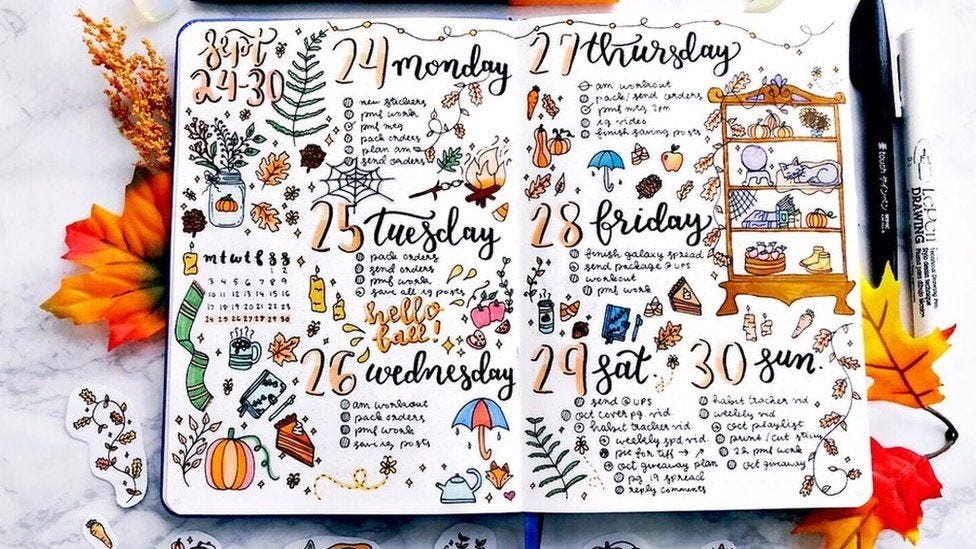 Sept
24-30
24 monday
new stickers
pmf work
pmf mtg
pack orders
plan am
send orders
25 Tuesday
pack orders
send orders
pmf work
save all ig posts
hello
fall!
m t w t f s s
1 2
3 4 5 6 7 8 9
10 11 12 13 14 15 16
17 18 19 20 21 22 23
24 25 26 27 28 29 30
26 wednesday
am workout
pack orders
pmf work
save ig posts
27 thursday
am workout
pack/send orders
pmf mtg 2pm
ig video
finish saving posts
28 friday
finish galaxy spread
send package @ UPS
workout
pmf work
29 sat.
send @ UPS
oct cover pg. vid.
habit tracker vid.
weekly spd vid.
pic for tiff
oct giveaway plan
pg. 19 spread
reply comments
30 sun.
habit tracker vid
weekly vid
oct playlist
print/cut
2h pmf work
oct giveaway
touch
DRAWING PEN